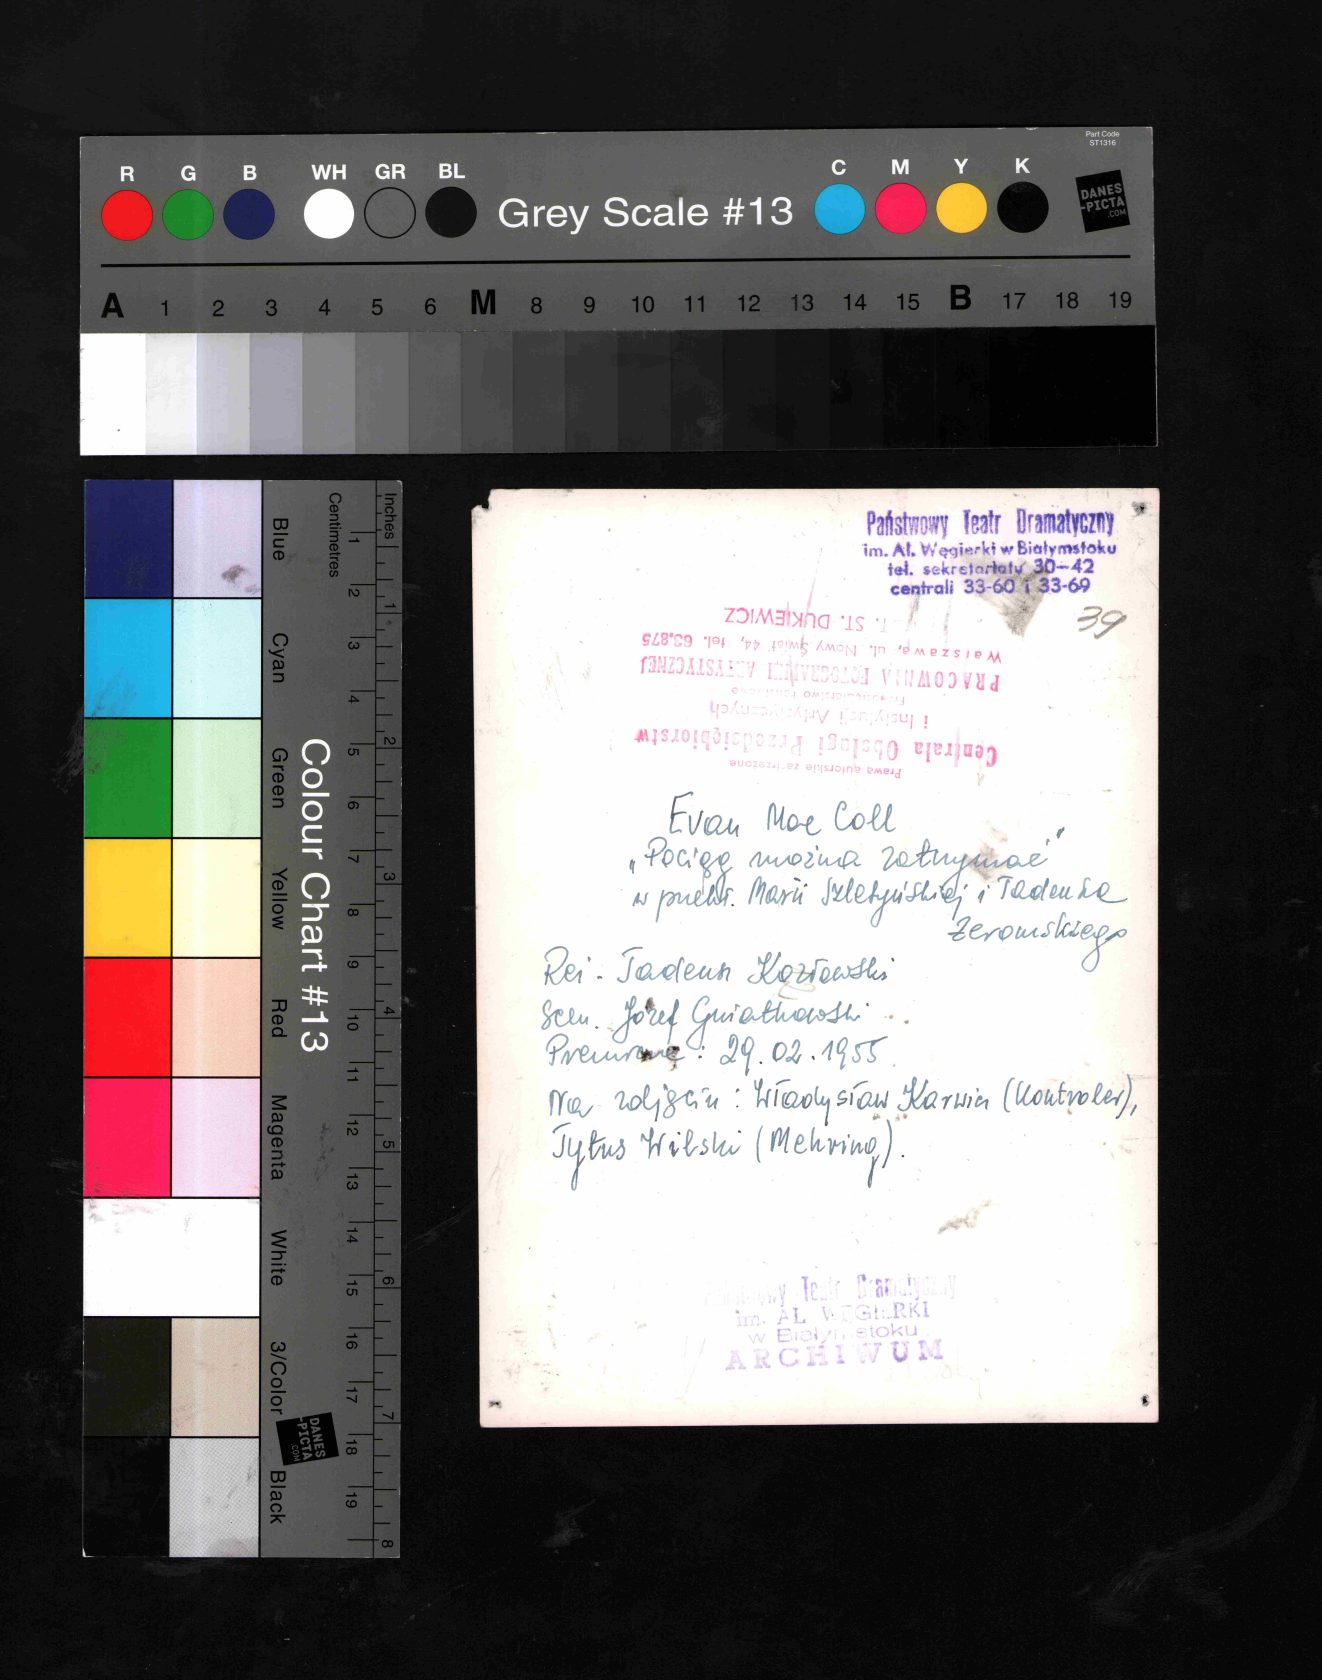 Part Code
ST1316
R G B WH GR BL Grey Scale #13 C M Y K
DANES
-PICTA
.COM
A 1 2 3 4 5 6 M 8 9 10 11 12 13 14 15 B 17 18 19
Colour Chart #13
Blue Cyan Green Yellow Red Magenta White 3/Color Black
Centimetres
1 2 3 4 5 6 7 8 9 10 11 12 13 14 15 16 17 18 19
Inches
1 2 3 4 5 6 7 8
DANES
-PICTA
.COM
Państwowy Teatr Dramatyczny
im. Al. Węgierki w Białymstoku
tel. sekretariatu 30-42
centrali 33-60 i 33-69
39
Prawa autorskie zastrzeżone
Centrala Obsługi Przedsiębiorstw
i Instytucji Artystycznych
PRACOWNIA FOTOGRAFII ARTYSTYCZNEJ
Warszawa, ul. Nowy Świat 44, tel. 63.875
ST. DUKIEWICZ
Evan Mac Coll
„Pociąg można zatrzymać"
w przekł. Marii Szletyńskiej i Tadeusza
Żeromskiego
Reż. Tadeusz Kozłowski
Scen. Józef Gniatkowski
Premiera: 29.02.1955
Na zdjęciu: Władysław Karwin (Kontroler),
Tytus Wilski (Mehring).
Państwowy Teatr Dramatyczny
im. AL. WĘGIERKI
w Białymstoku
ARCHIWUM